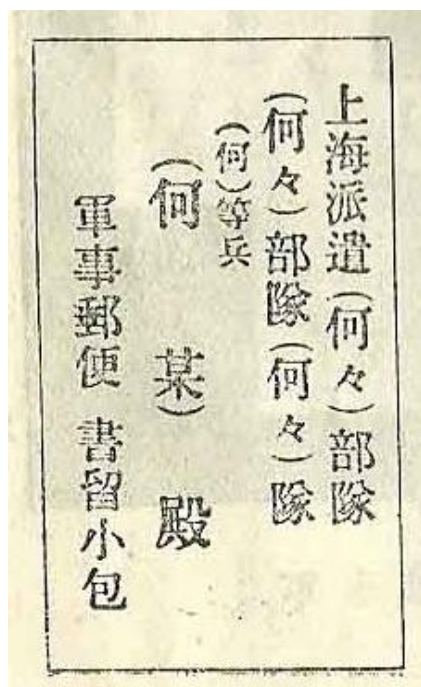 上海派遣(何々)部隊
(何々)部隊(何々)隊
(何)等兵
(何 某) 殿
軍事郵便 書留小包